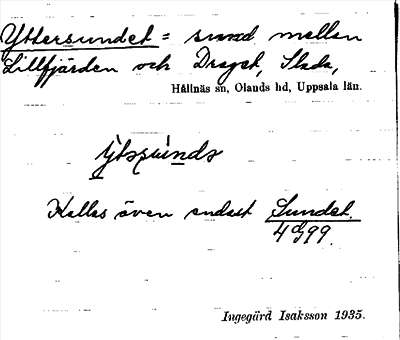 Yttersundet = sund mellan
Lillfjärden och Draget, Slada,
Hållnäs sn, Olands hd, Uppsala län.
Kallas även endast Sundet.
Ingegärd Isaksson 1935.